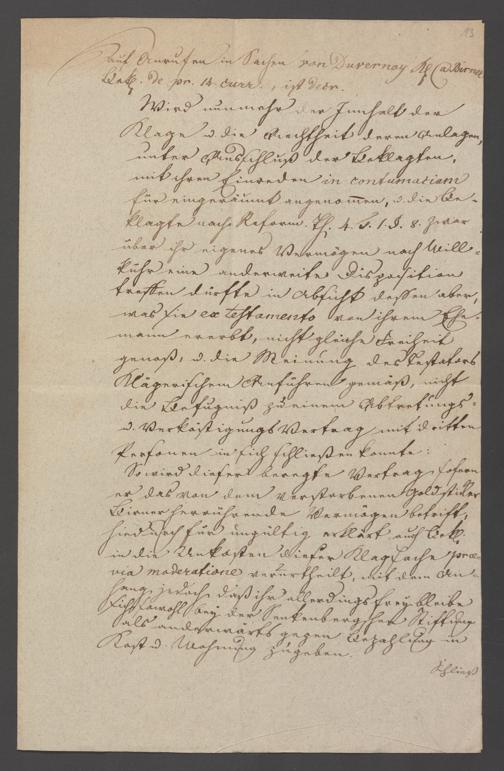 13
Auf Anrufen in Sachen von Duvernoy Kl. Ca Birner
Bekl. de pr. 14. curr., ist decr.
Wird nunmehr der Innhalt der
Klage u. die Aechtheit deren Anlagen,
unter Ausschluß der Beklagten,
mit ihren Einreden in contumaciam
für eingeräumt angenommen, u. die Be-
klagte nach Reform. Th. 4. t. 1. §. 8. zwar
über ihr eigenes Vermögen nach Will-
kühr eine anderweite Disposition
treffen dürfte in Absicht dessen aber,
was sie ex testamento von ihrem Ehe-
mann ererbt, nicht gleiche Freiheit
genoß, u. die Meinung des Testators
Klägerischem Anführen gemäß, nicht
die Befugniß zu einem Abtretungs-
u. Verköstigungs Vertrag mit dritten
Personen in sich schließen konnte:
So wird dieser beregte Vertrag, sofern
er das von dem verstorbenen Goldsticker
Birner herrührende Vermögen betrift,
hiedurch für ungültig erklärt auch Bekl.
in die Unkosten dieser Klagsache prae-
via moderatione verurtheilt, mit dem An-
hang jedoch daß ihr allerdings frey bleibe
sich sowohl bey der Senkenbergschen Stiftung
als anderwärts gegen Bezahlung in
Kost u. Wohnung zu geben.